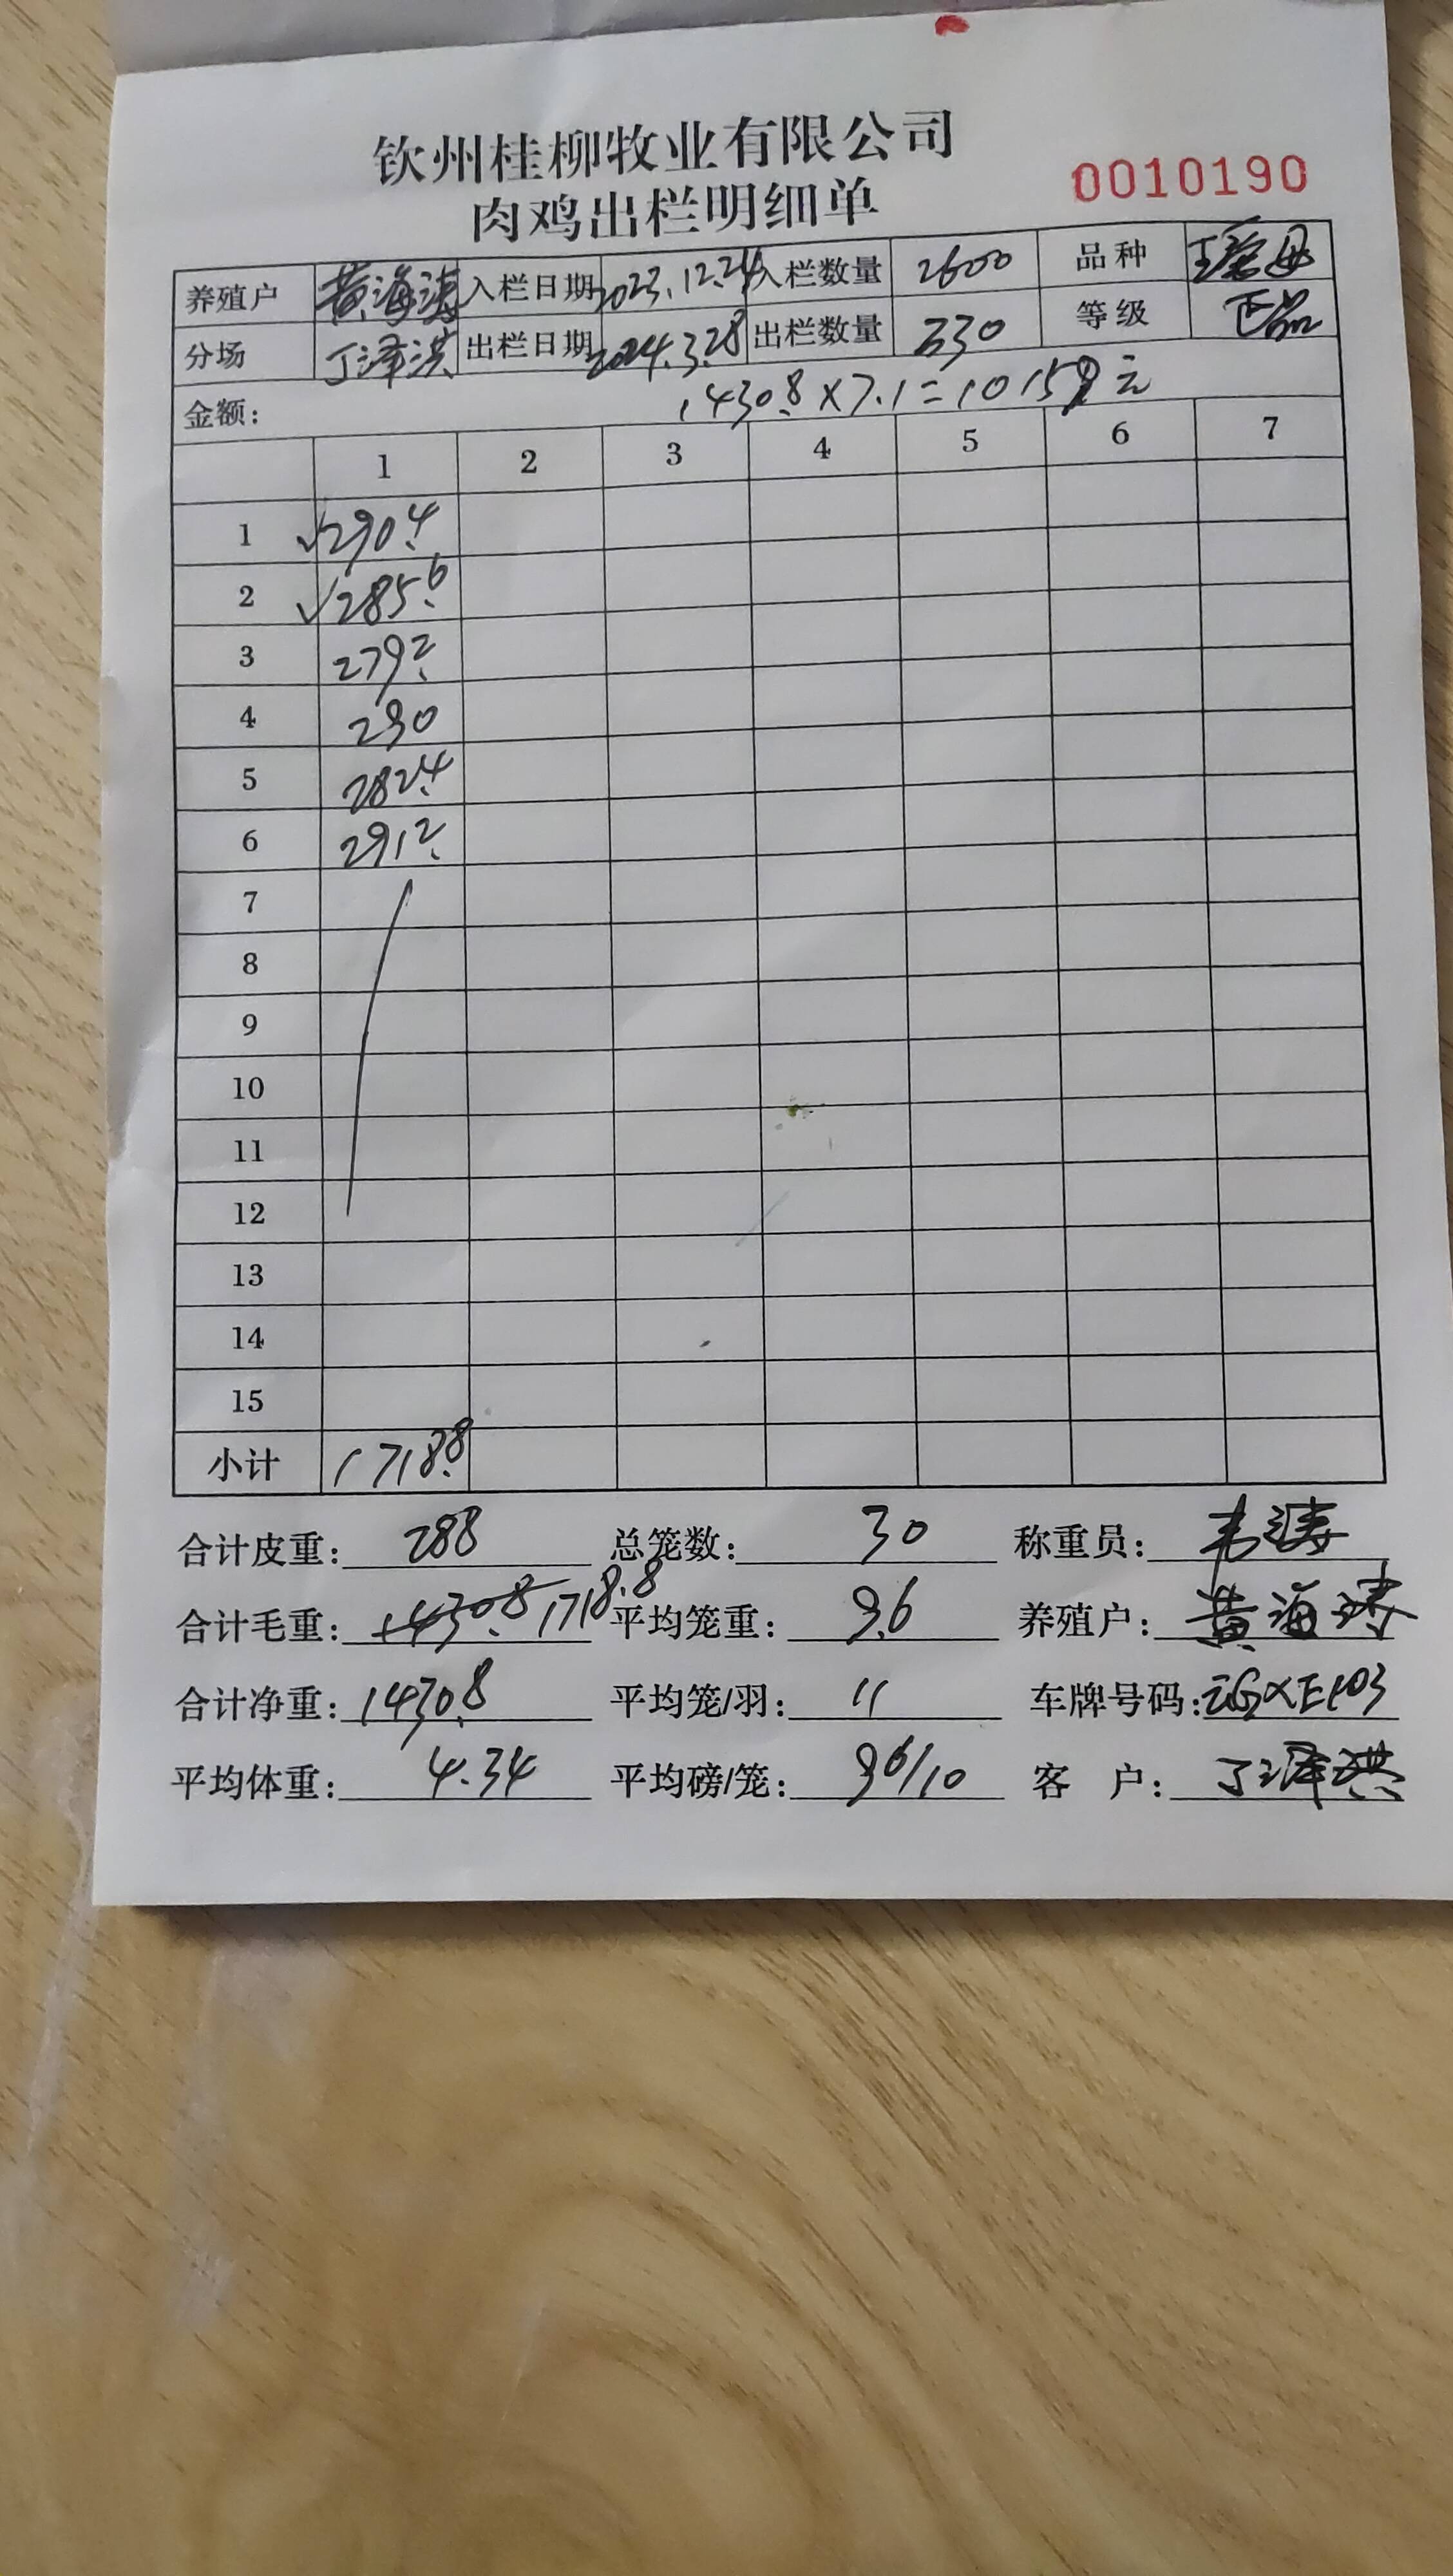 钦州桂柳牧业有限公司
肉鸡出栏明细单 0010190
养殖户 黄海涛 入栏日期 2023.12.24 入栏数量 2600 品种 母
分场 丁泽洪 出栏日期 2024.3.28 出栏数量 330 等级 正品
金额: 1430.8×7.1=10159元
1 2 3 4 5 6 7
1 √290.4
2 √285.6
3 279.2
4 290
5 282.4
6 291.2
7
8
9
10
11
12
13
14
15
小计 1718.8
合计皮重: 288 总笼数: 30 称重员: 韦涛
合计毛重: 1430.8 1718.8 平均笼重: 9.6 养殖户: 黄海涛
合计净重: 1430.8 平均笼/羽: 11 车牌号码:
平均体重: 4.34 平均磅/笼: 96/10 客 户: 丁泽洪